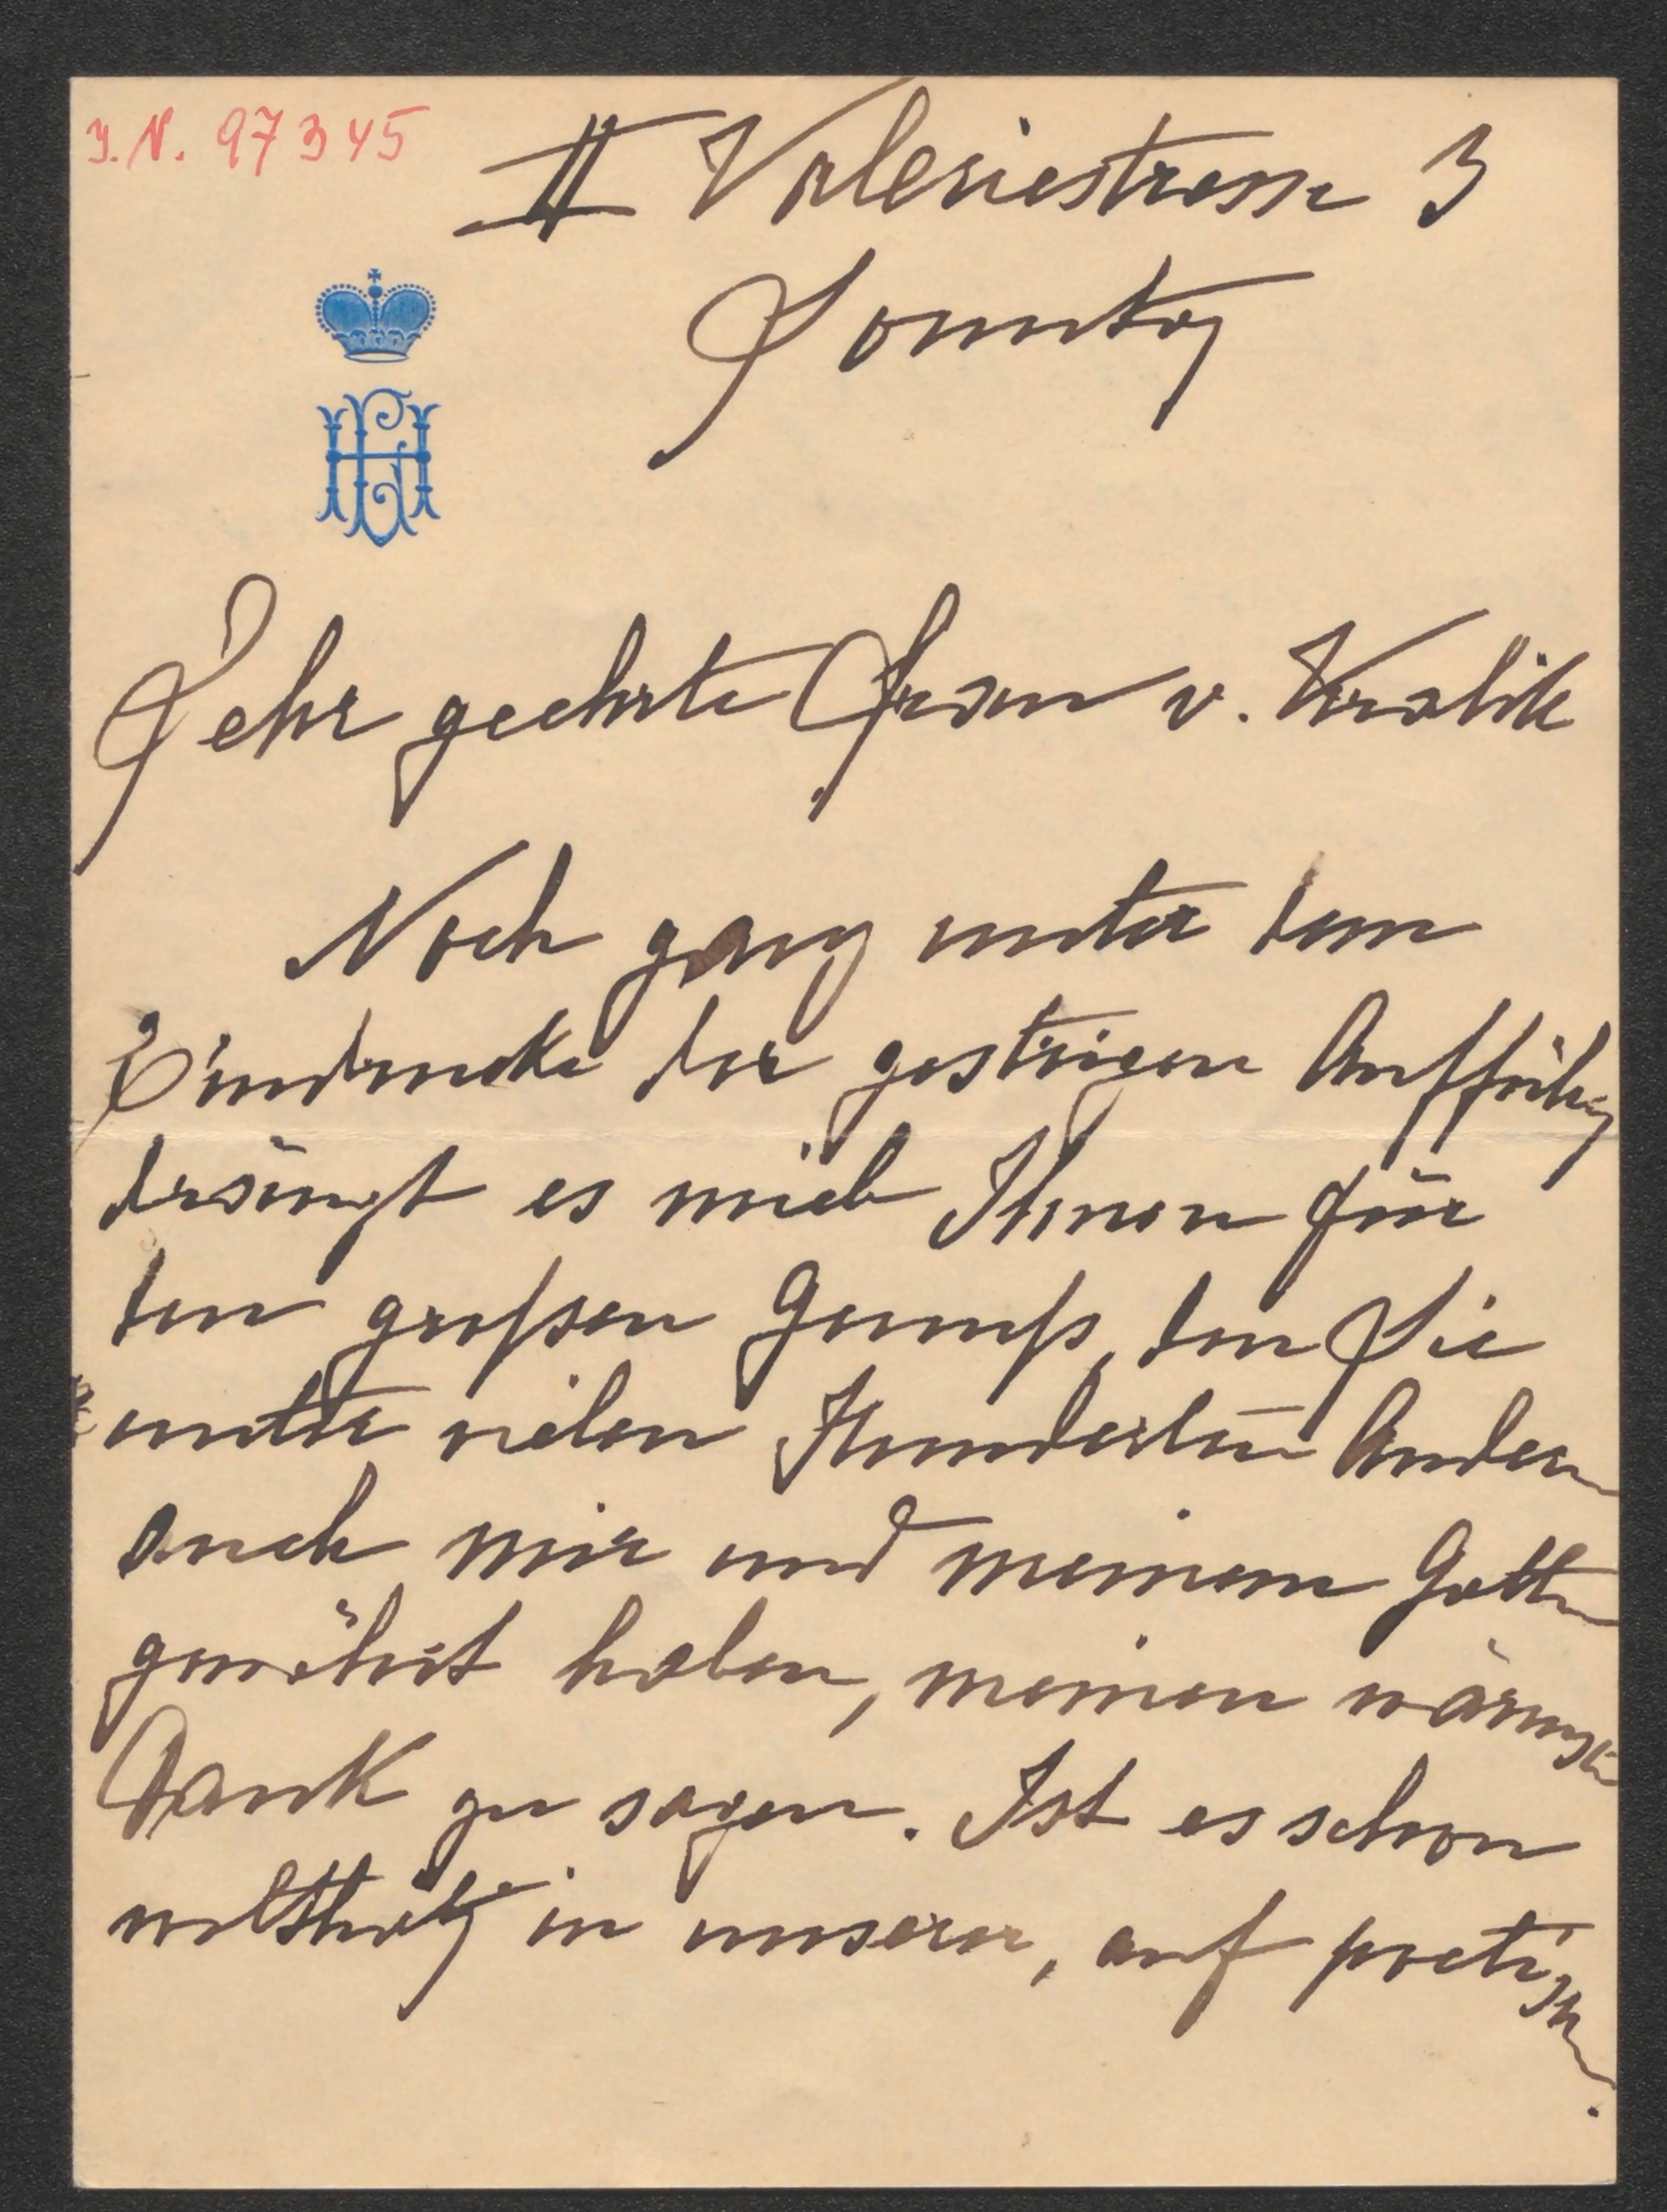 I.N. 97345
II Valeriestrasse 3
Sonntag
Sehr geehrte Frau v. Kralik
Noch ganz unter dem
Eindrucke der gestrigen Aufführung
drängt es mich Ihnen für
den großen Genuß, den Sie
unter vielen Hunderten Andern
auch mir und meinem Gatten
gewährt haben, meinen wärmsten
Dank zu sagen. Ist es schon
in unserer, auf poetischem